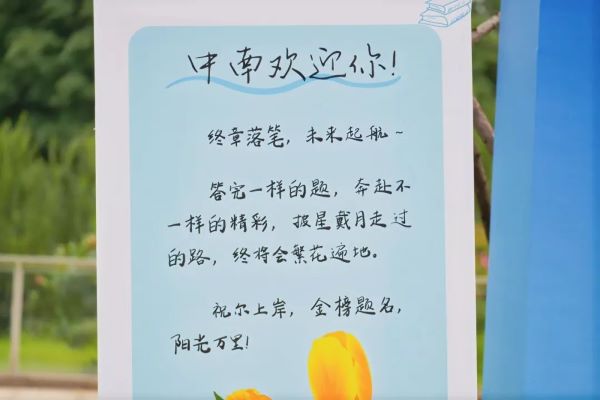 中南欢迎你!
终章落笔,未来起航~
答完一样的题,奔赴不
一样的精彩,披星戴月走过
的路,终将会繁花遍地。
祝尔上岸,金榜题名,
阳光万里!